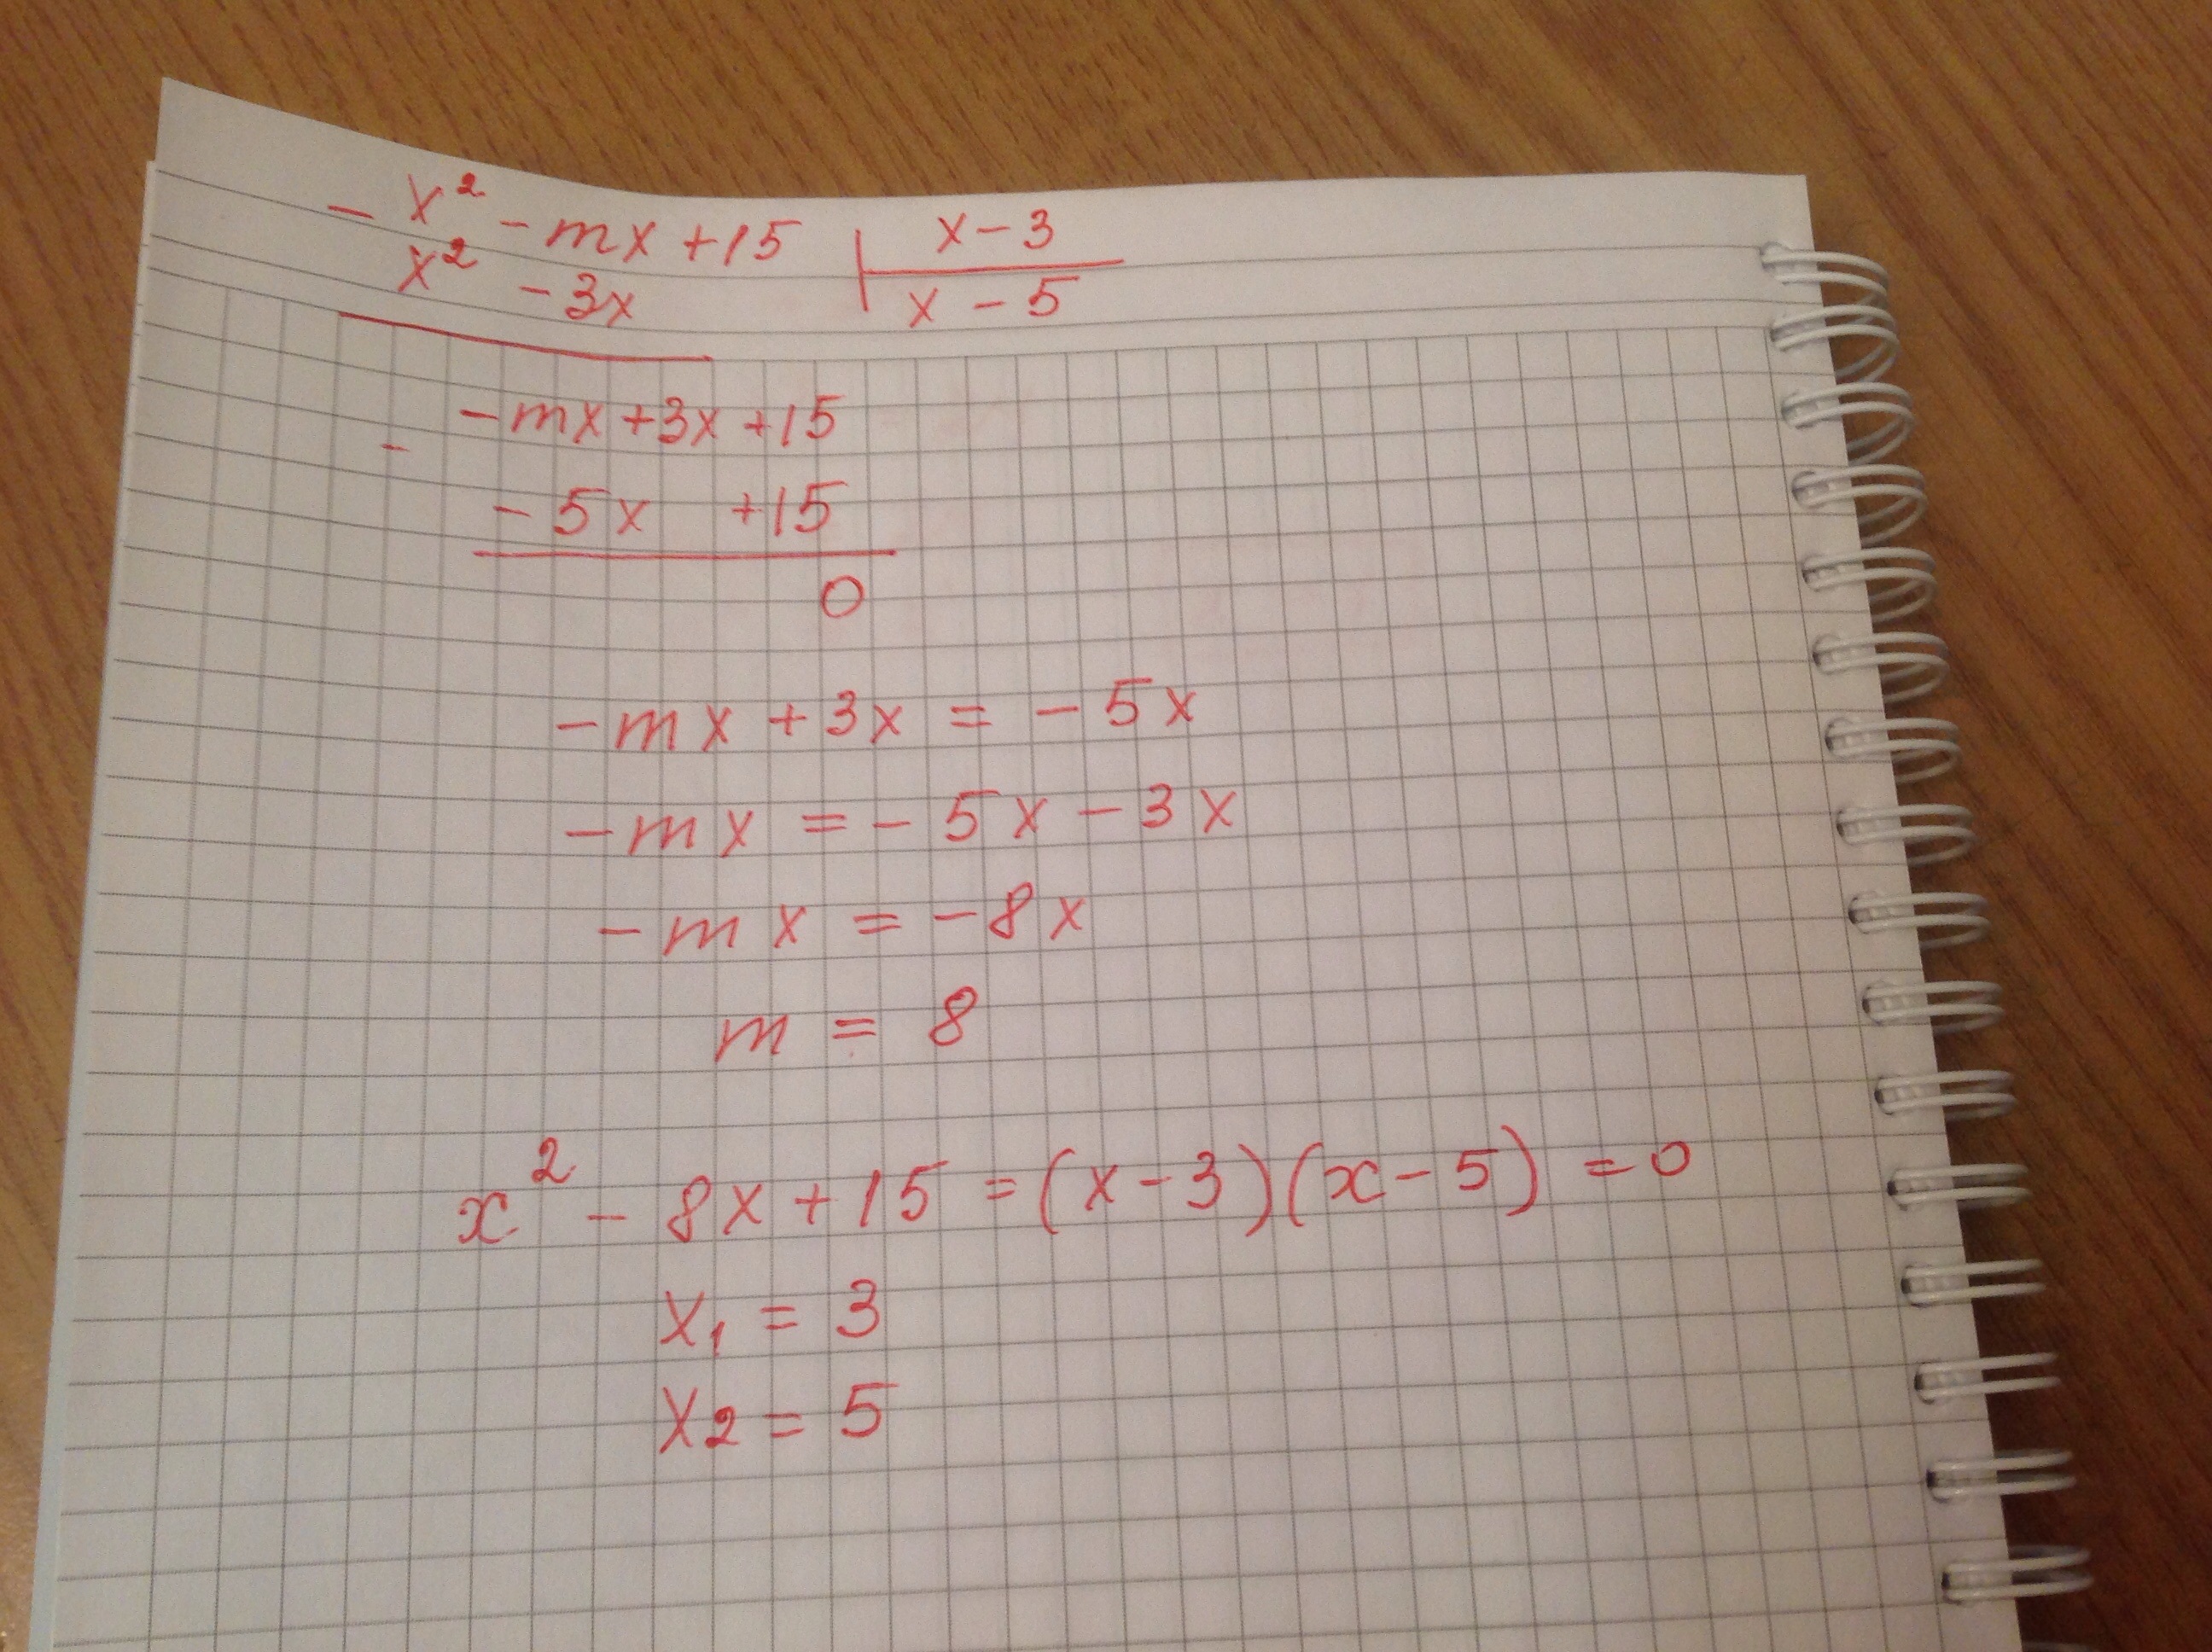 - x² - mx + 15 | x - 3
x² - 3x | x - 5
- mx + 3x + 15
-
- 5x + 15
0
- mx + 3x = - 5x
- mx = - 5x - 3x
- mx = - 8x
m = 8
x² - 8x + 15 = (x - 3)(x - 5) = 0
x₁ = 3
x₂ = 5